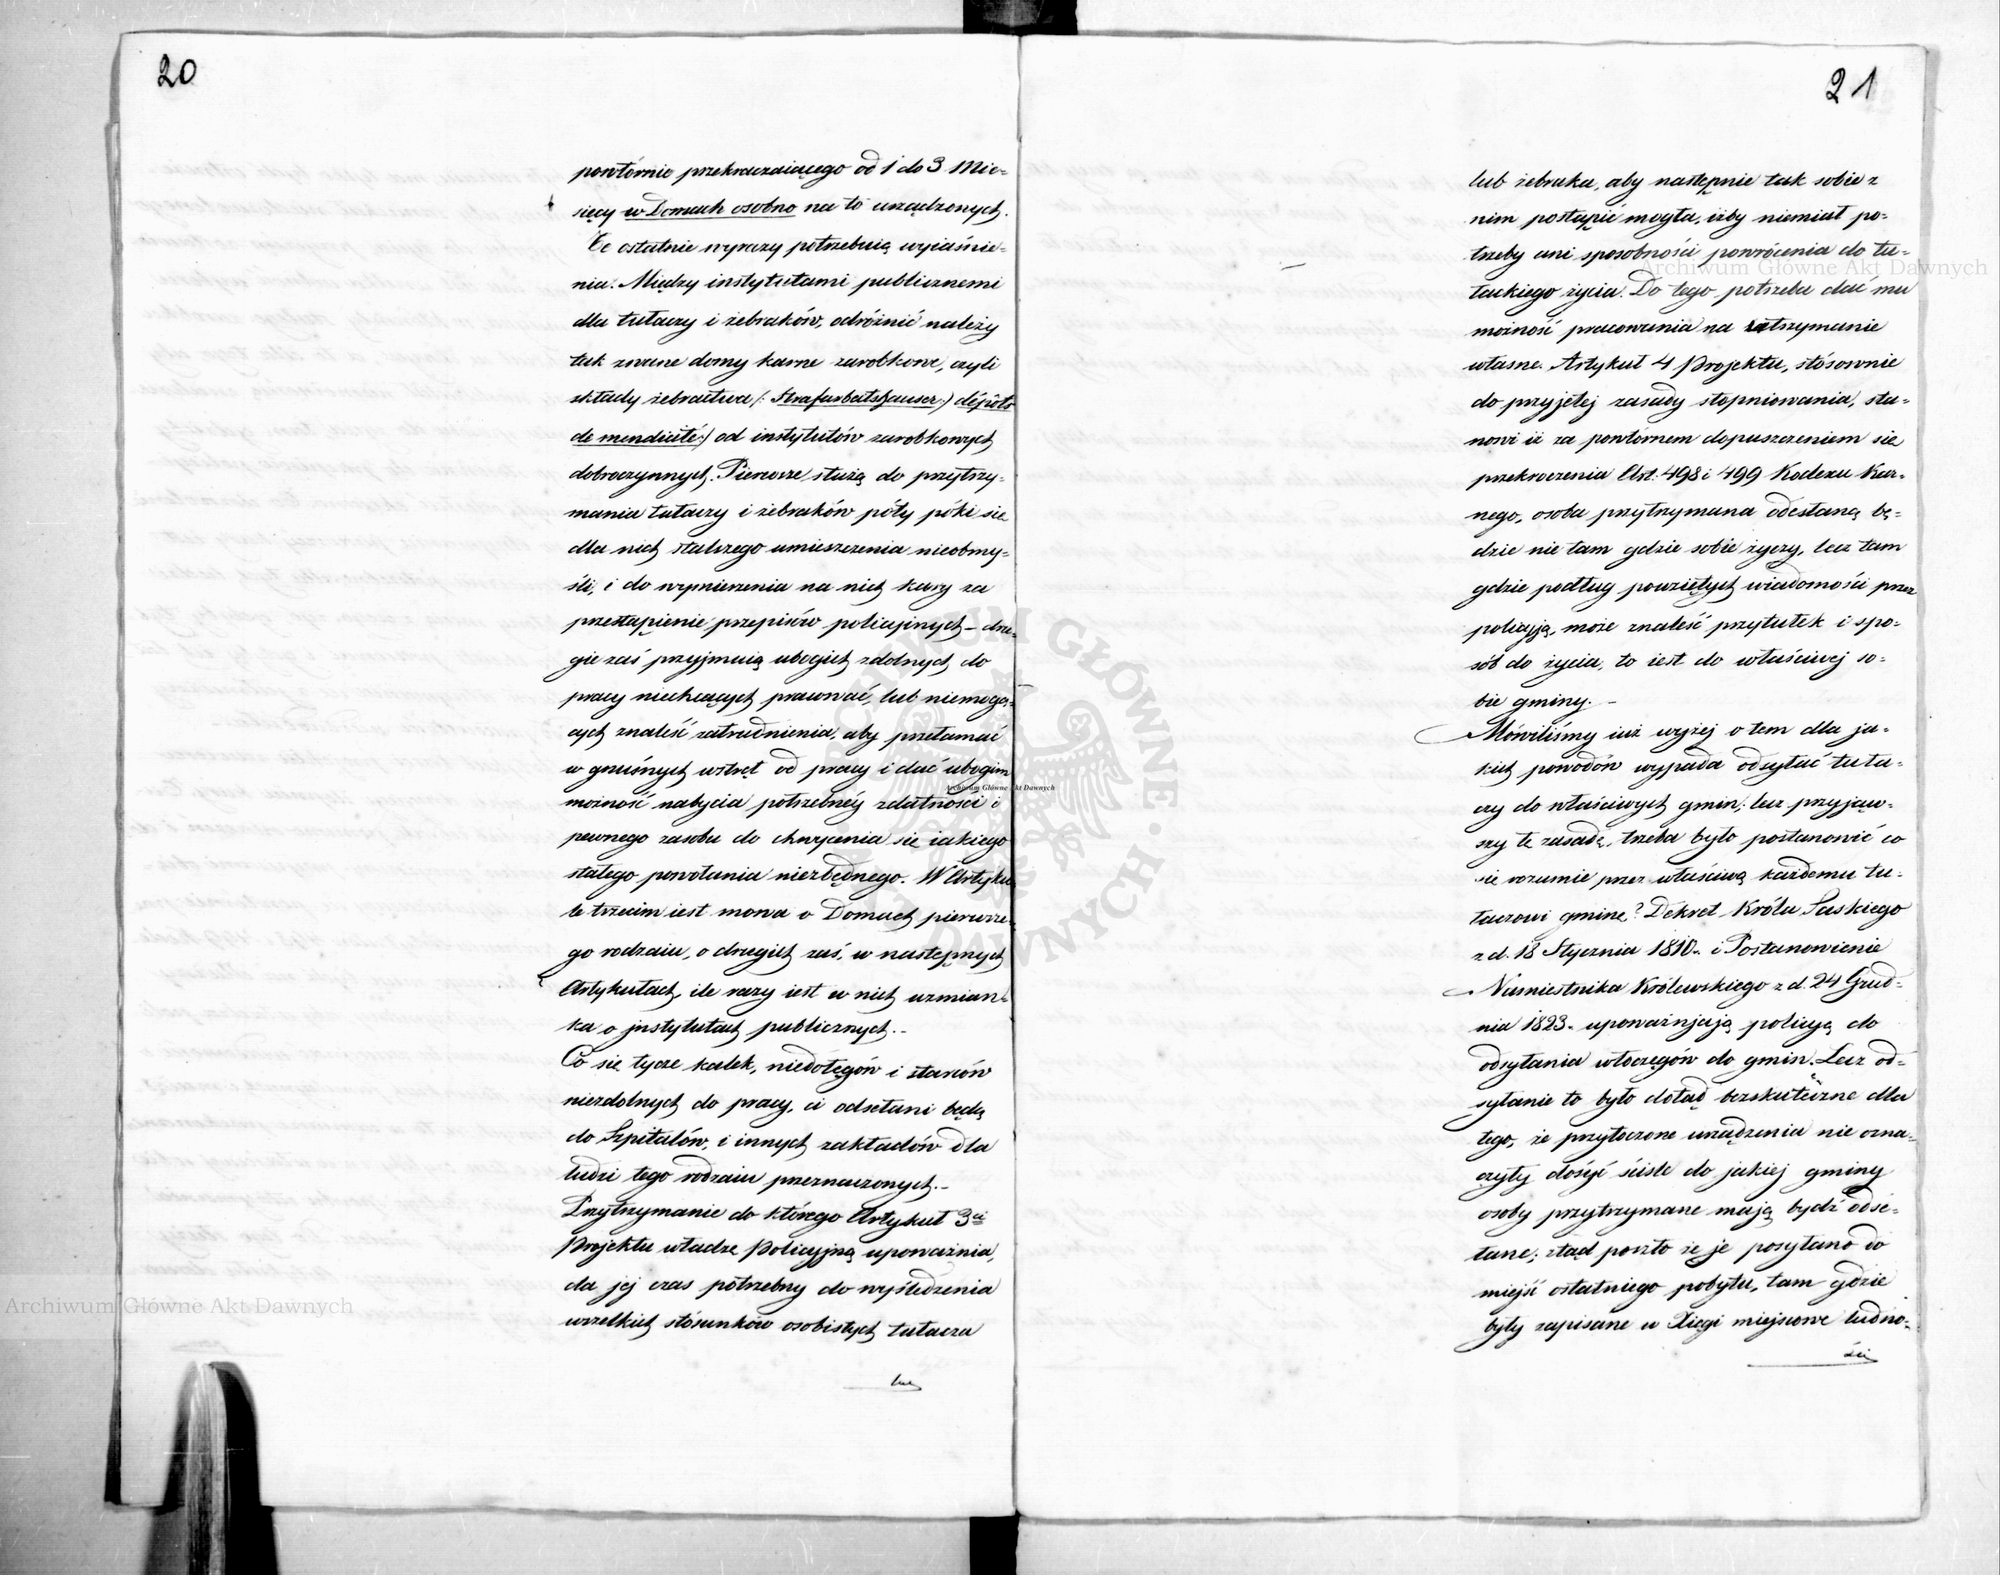 20
powtórnie przekraczaiącego od 1 do 3 Mie-
sięcy w Domach osobno na to urządzonych.
Te ostatnie wyrazy potrzebuią wyiaśnie-
nia. Między instytutami publicznemi
dla tułaczy i żebraków, odróżnić należy
tak zwane domy karne zarobkowe, czyli
składy żebractwa /: Strafarbeitshauser:/ dépôts
de mendicité:/ od instytutów zarobkowych
dobroczynnych. Pierwsze służą do przytrzy-
mania tułaczy i żebraków póty póki się
dla nich stalszego umieszczenia nieobmy-
śli, i do wymierzenia na nich kary za
przestąpienie przepisów policyinych – dru-
gie zaś przyjmuią ubogich zdolnych do
pracy niechcących pracować, lub niemogą-
cych znaleść zatrudnienia, aby przełamać
w gnuśnych wstręt od pracy i dać ubogim
możność nabycia potrzebnéy zdatności i
pewnego zasobu do chwycenia się iakiego
stałego powołania niezbędnego. W Artyku
le trzecim iest mowa o Domach pierwsze-
go rodzaiu, o drugich zaś, w następnych
Artykułach, ile razy iest w nich wzmian-
ka o jnstytutach publicznych.-
Co się tycze kalek, niedołęgów i starców
niezdolnych do pracy, ci odsełani będą
do Szpitalów, i innych zakładów dla
ludzi tego rodzaiu przeznaczonych.-
Przytrzymanie do którego Artykuł 3ci
Projektu władzę Policyjną upoważnia,
da jej czas potrzebny do wyśledzenia
wszelkich stósunków osobistych tułacza
lub
21
lub żebraka, aby następnie tak sobie z
nim postąpić mogła, iżby niemiał po-
trzeby ani sposobności powrócenia do tu-
łackiego życia. Do tego potrzeba dać mu
możność pracowania na utrzymanie
własne. Artykuł 4 Projektu, stósownie
do przyjętej zasady stopniowania, sta-
nowi iż za powtórnem dopuszczeniem się
przekroczenia Art. 498 i 499 Kodexu Kar-
nego, osoba przytrzymana odesłaną bę-
dzie nie tam gdzie sobie życzy, lecz tam
gdzie podług powziętych wiadomości przez
policyją, może znaleść przytułek i spo-
sób do życia, to iest do właściwej so-
bie gminy. -
Mówiliśmy iuż wyżej o tem dla ja-
kich powodów wypada odsyłać tuła-
czy do właściwych gmin; lecz przyjąw-
szy tę zasadę, trzeba było postanowić co
się rozumie przez właściwą każdemu tu-
łaczowi gminę? Dekret Króla Saskiego
z d. 18 Stycznia 1810. i Postanowienie
Namiestnika Królewskiego z d. 24 Grud-
nia 1823. upoważnjają policyą do
odsyłania włóczęgów do gmin. Lecz od-
syłanie to było dotąd bezskuteczne dla
tego, że przytoczone urządzenia nie ozna-
czyły dosyć ściśle do jakiej gminy
osoby przytrzymane mają bydź odse-
łane; ztąd poszło że je posyłano do
miejsc ostatniego pobytu, tam gdzie
były zapisane w Xięgi miejscowe ludno-
ści
Archiwum Główne Akt Dawnych
Archiwum Główne Akt Dawnych
Archiwum Główne Akt Dawnych